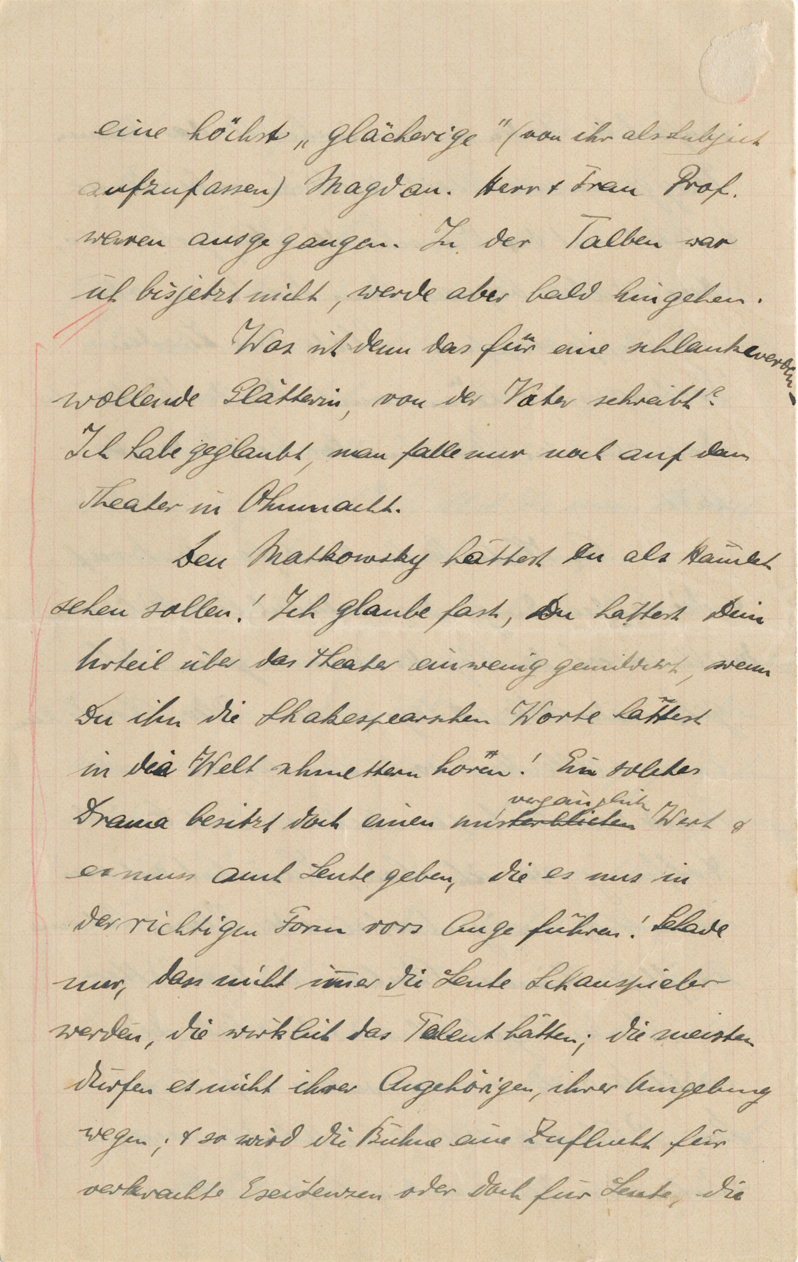 eine höchst „glächerige" (von ihr als Subject
aufzufassen) Magd an. Herr & Frau Prof.
waren ausgegangen. In der Talben war
ich bisjetzt nicht, werde aber bald hingehen.
Was ist denn das für eine schlankwerden
wollende Glätterin, von der Vater schreibt?
Ich habe geglaubt, man falle nur noch auf dem
Theater in Ohnmacht.
Den Matkowsky hättest Du als Hamlet
sehen sollen! Ich glaube fast, Du hättest Dein
Urteil über das Theater ein wenig gemildert, wenn
Du ihn die Shakespearschen Worte hättest
in die Welt schmettern hören! Ein solches
vergänglich
Drama besitzt doch einen unsterblichen Wert &
es muss auch Leute geben, die es uns in
der richtigen Form vors Auge führen! Schade
nur, dass nicht immer die Leute Schauspieler
werden, die wirklich das Talent hätten; die meisten
dürfen es nicht ihrer Angehörigen, ihrer Umgebung
wegen; & so wird die Bühne eine Zuflucht für
verkrachte Existenzen oder doch für Leute, die